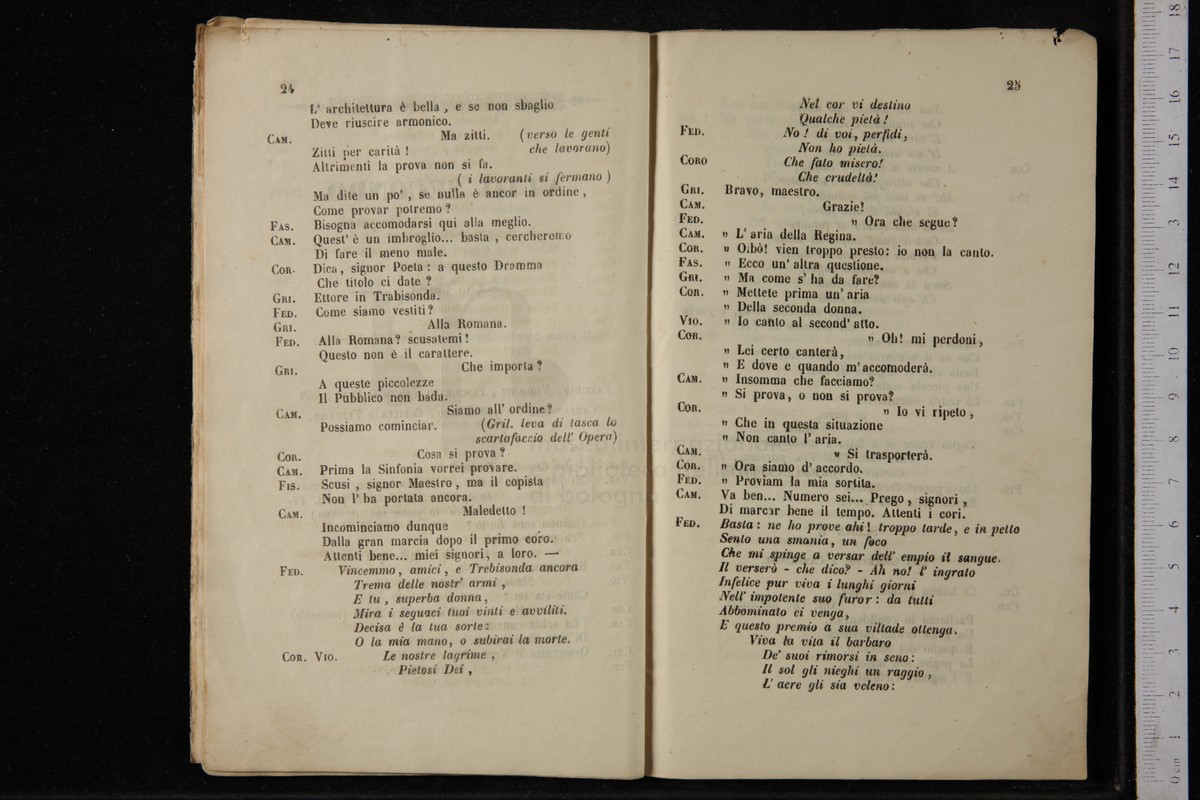 24
L' architettura è bella , e se non sbaglio
Deve riuscire armonico.
CAM. Ma zitti. (verso le genti
Zitti per carità ! che lavorano)
Altrimenti la prova non si fa.
( i lavoranti si fermano )
Ma dite un po' , se nulla è ancor in ordine ,
Come provar potremo ?
FAS. Bisogna accomodarsi qui alla meglio.
CAM. Quest' è un imbroglio... basta , cercheremo
Di fare il meno male.
COR. Dica , signor Poeta : a questo Dramma
Che titolo ci date ?
GRI. Ettore in Trabisonda.
FED. Come siamo vestiti ?
GRI. Alla Romana.
FED. Alla Romana ? scusatemi !
Questo non è il carattere.
GRI. Che importa ?
A queste piccolezze
Il Pubblico non bada.
CAM. Siamo all' ordine ?
Possiamo cominciar. (Gril. leva di tasca lo
scartafaccio dell' Opera)
COR. Cosa si prova ?
CAM. Prima la Sinfonia vorrei provare.
FIS. Scusi , signor Maestro , ma il copista
Non l' ha portata ancora.
CAM. Maledetto !
Incominciamo dunque
Dalla gran marcia dopo il primo coro.
Attenti bene... miei signori, a loro. —
FED. Vincemmo, amici, e Trebisonda ancora
Trema delle nostr' armi ,
E tu , superba donna ,
Mira i seguaci tuoi vinti e avviliti.
Decisa è la tua sorte :
O la mia mano, o subirai la morte.
COR. VIO. Le nostre lagrime ,
Pietosi Dei ,
25
Nel cor vi destino
Qualche pietà !
FED. No ! di voi, perfidi,
Non ho pietà.
CORO Che fato misero!
Che crudeltà!
GRI. Bravo, maestro.
CAM. Grazie!
FED. » Ora che segue?
CAM. » L' aria della Regina.
COR. » Oibò! vien troppo presto: io non la canto.
FAS. » Ecco un' altra questione.
GRI. » Ma come s' ha da fare?
COR. » Mettete prima un' aria
» Della seconda donna.
VIO. » Io canto al second' atto.
COR. » Oh! mi perdoni,
» Lei certo canterà,
» E dove e quando m' accomoderà.
CAM. » Insomma che facciamo?
» Si prova, o non si prova?
COR. » Io vi ripeto ,
» Che in questa situazione
» Non canto l' aria.
CAM. » Si trasporterà.
COR. » Ora siamo d' accordo.
FED. » Proviam la mia sortita.
CAM. Va ben... Numero sei... Prego , signori ,
Di marcar bene il tempo. Attenti i cori.
FED. Basta : ne ho prove ahi ! troppo tarde, e in petto
Sento una smania, un foco
Che mi spinge a versar dell' empio il sangue.
Il verserò - che dico? - Ah no! l' ingrato
Infelice pur viva i lunghi giorni
Nell' impotente suo furor : da tutti
Abbominato ei venga,
E questo premio a sua viltade ottenga.
Viva la vita il barbaro
De' suoi rimorsi in seno :
Il sol gli nieghi un raggio ,
L' aere gli sia veleno :